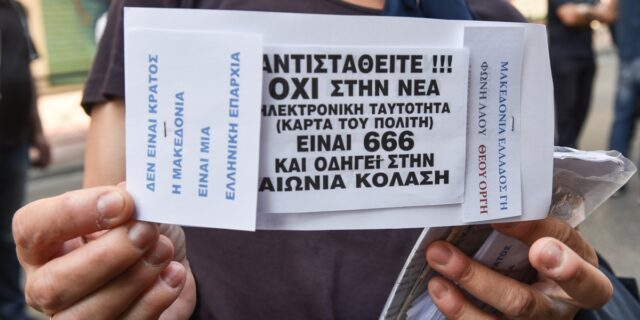 ΔΕΝ ΕΙΝΑΙ ΚΡΑΤΟΣ
Η ΜΑΚΕΔΟΝΙΑ
ΕΙΝΑΙ ΜΙΑ
ΕΛΛΗΝΙΚΗ ΕΠΑΡΧΙΑ
ΑΝΤΙΣΤΑΘΕΙΤΕ !!!
ΟΧΙ ΣΤΗΝ ΝΕΑ
ΗΛΕΚΤΡΟΝΙΚΗ ΤΑΥΤΟΤΗΤΑ
(ΚΑΡΤΑ ΤΟΥ ΠΟΛΙΤΗ)
ΕΙΝΑΙ 666
ΚΑΙ ΟΔΗΓΕΙ ΣΤΗΝ
ΑΙΩΝΙΑ ΚΟΛΑΣΗ
ΜΑΚΕΔΟΝΙΑ ΕΛΛΑΔΟΣ ΓΗ
ΦΩΝΗ ΛΑΟΥ ΘΕΟΥ ΟΡΓΗ